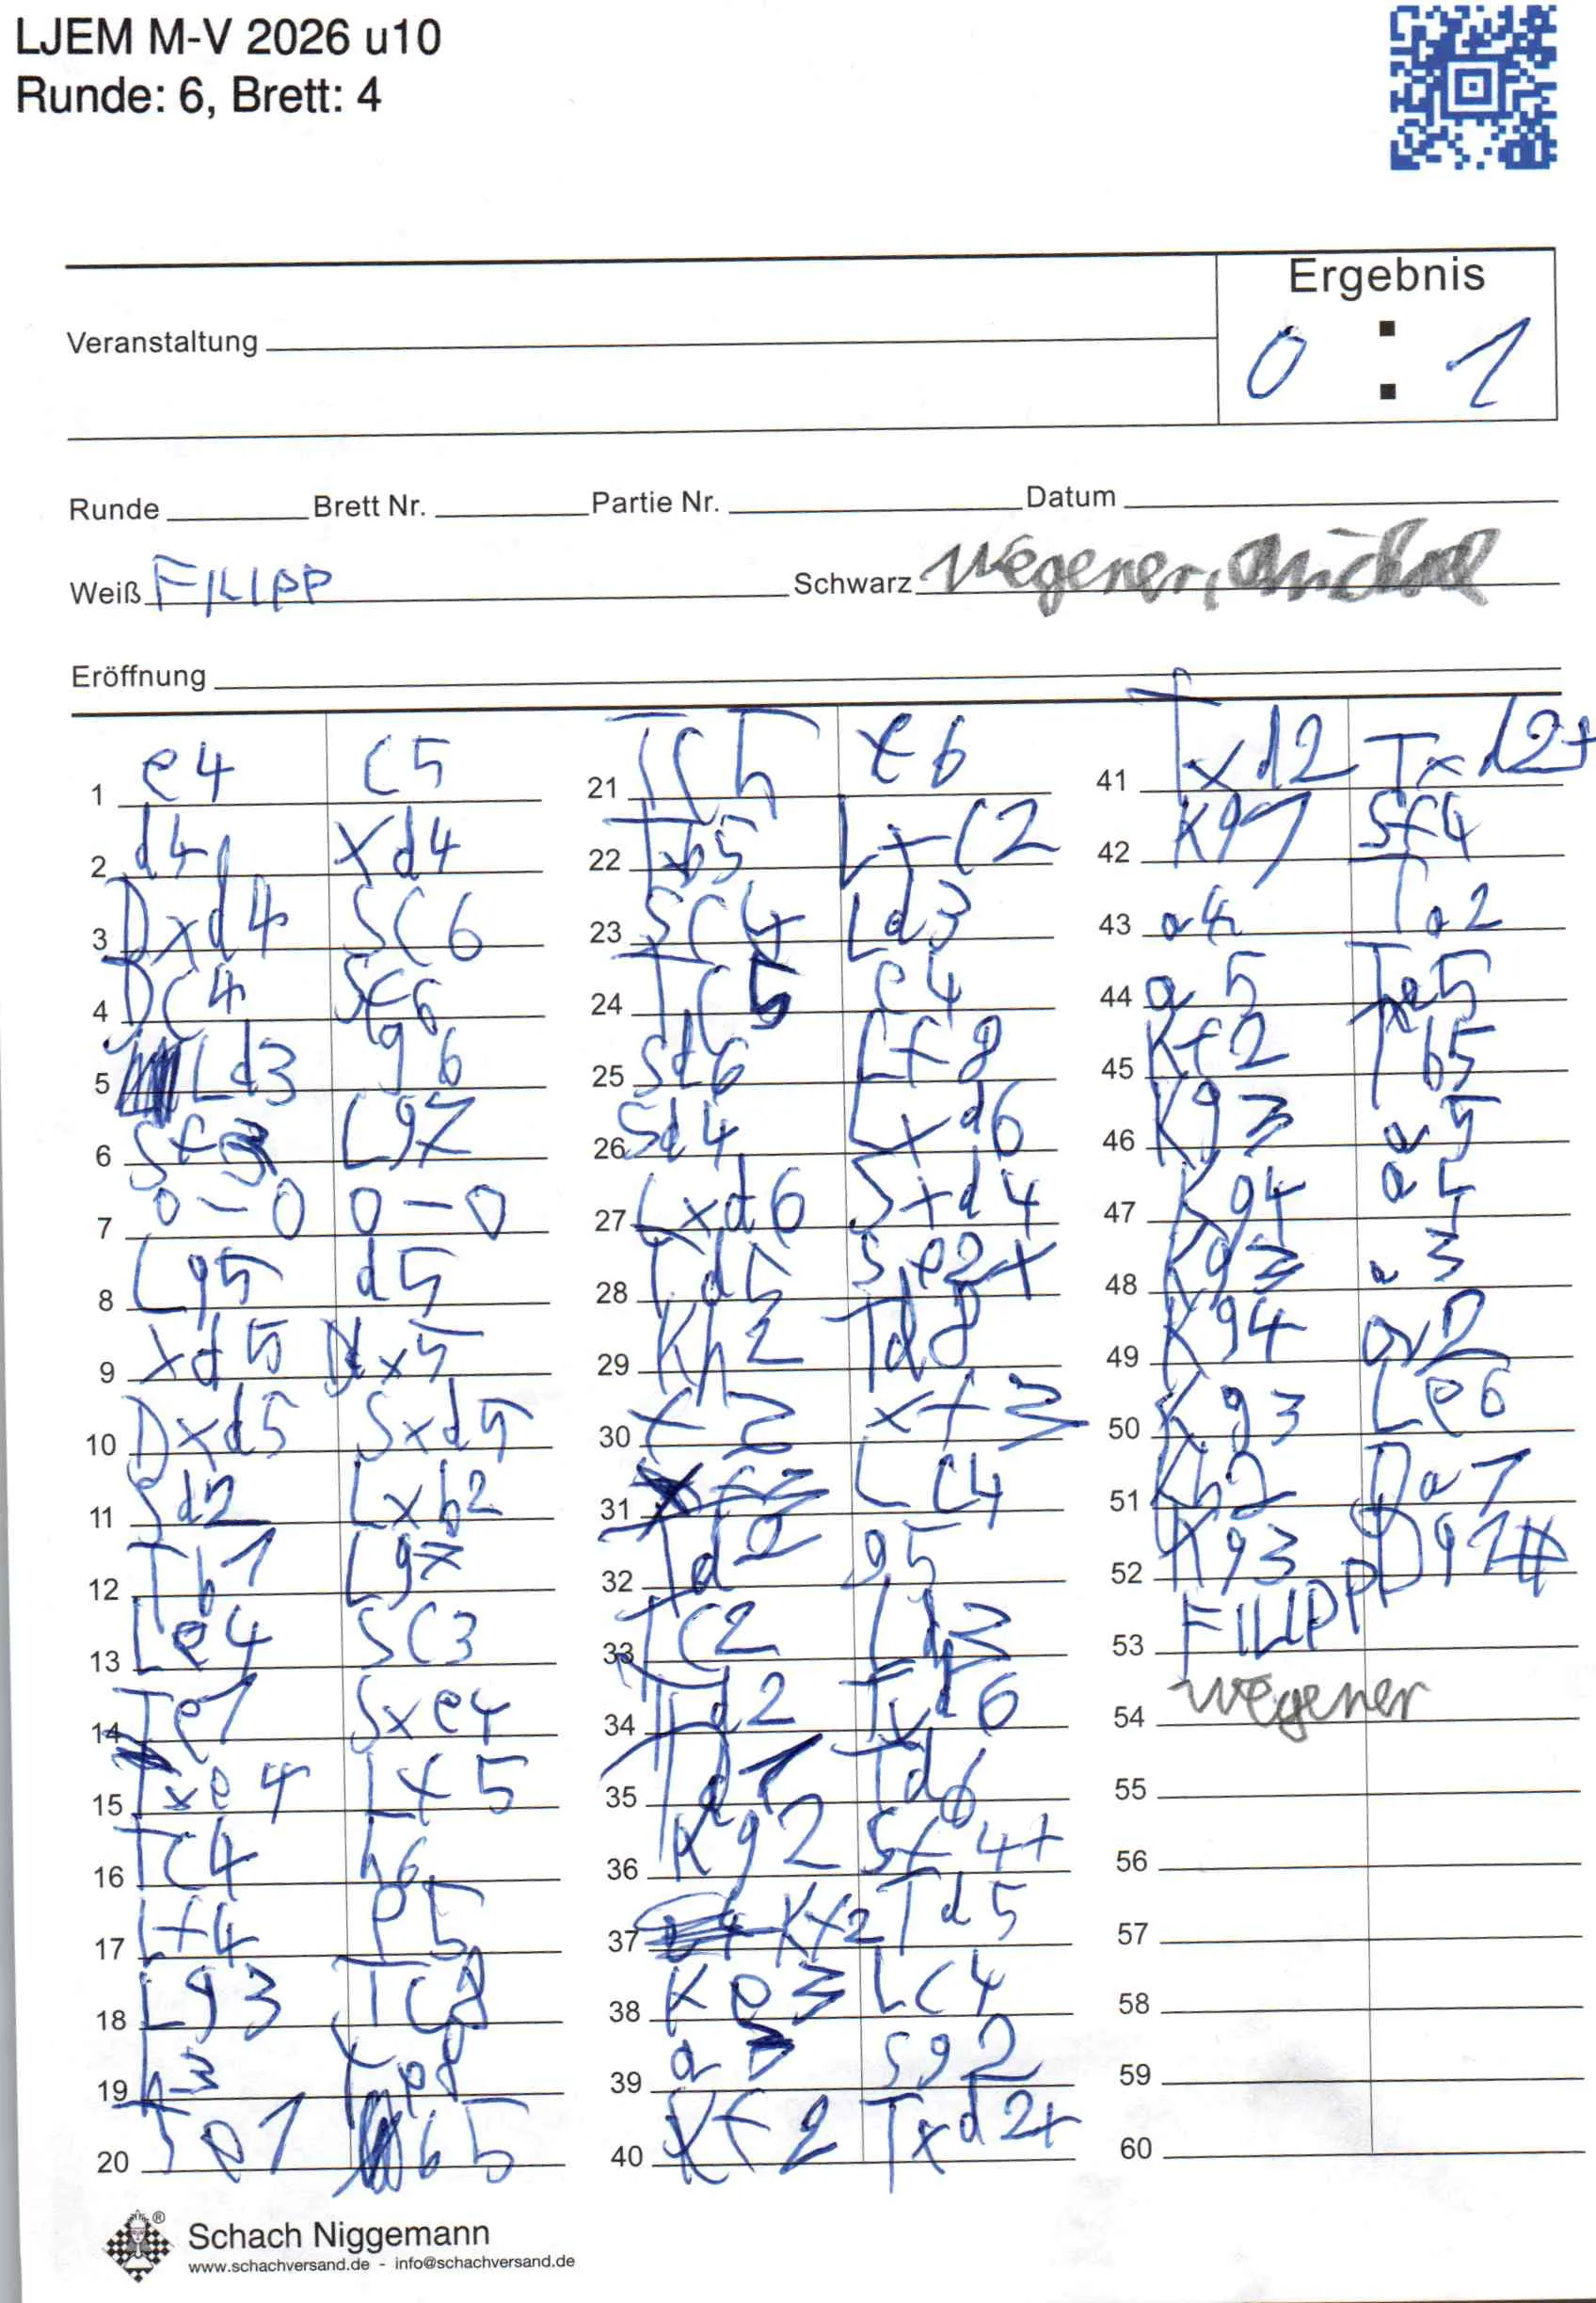 LJEM M-V 2026 u10
Runde: 6, Brett: 4
Ergebnis
Veranstaltung
0 : 1
Runde Brett Nr. Partie Nr. Datum
Weiß FILIPP Schwarz Wegener, Michael
Eröffnung
1 e4 c5
2 d4 xd4
3 Dxd4 Sc6
4 Dc4 Sf6
5 Ld3 g6
6 Sf3 Lg7
7 0-0 0-0
8 Lg5 d5
9 xd5 Dx5
10 Dxd5 Sxd5
11 Sd2 Lxb2
12 Tb1 Lg7
13 Le4 Sc3
14 Te1 Sxe4
15 Txe4 Lf5
16 Tc4 h6
17 Lf4 e5
18 Lg3 Tc8
19 h3 e8
20 Te1 b5
21 Tc5 e6
22 Txb5 Lxc2
23 Sc4 Ld3
24 Tc5 e4
25 Sd6 Lf8
26 Sd4 Lxd6
27 Lxd6 Sxd4
28 Td5 Se2+
29 Kh2 Td8
30 f3 xf3
31 xf3 Lc4
32 Td2 g5
33 Tc2 Ld3
34 Td2 Txd6
35 Td1 Td6
36 Kg2 Sf4+
37 Kf2 Td5
38 Ke3 Lc4
39 a3 Sg2
40 Kf2 Txd2+
41 Txd2 Txd2+
42 Kg1 Sf4
43 a4 Ta2
44 a5 Txa5
45 Kf2 Tb5
46 Kg3 a5
47 Kg4 a4
48 Kg3 a3
49 Kg4 a2
50 Kg3 Le6
51 Kh2 Da1
52 Kg3 Dg1#
53 FILIPP
54 Wegener
55
56
57
58
59
60
Schach Niggemann
www.schachversand.de - info@schachversand.de